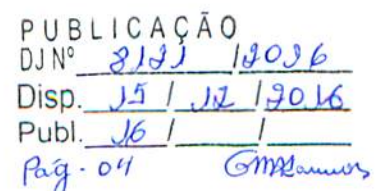 PUBLICAÇÃO
DJ Nº 8121 / 2016
Disp. 15 / 12 / 2016
Publ. 16 / /
Pág - 04